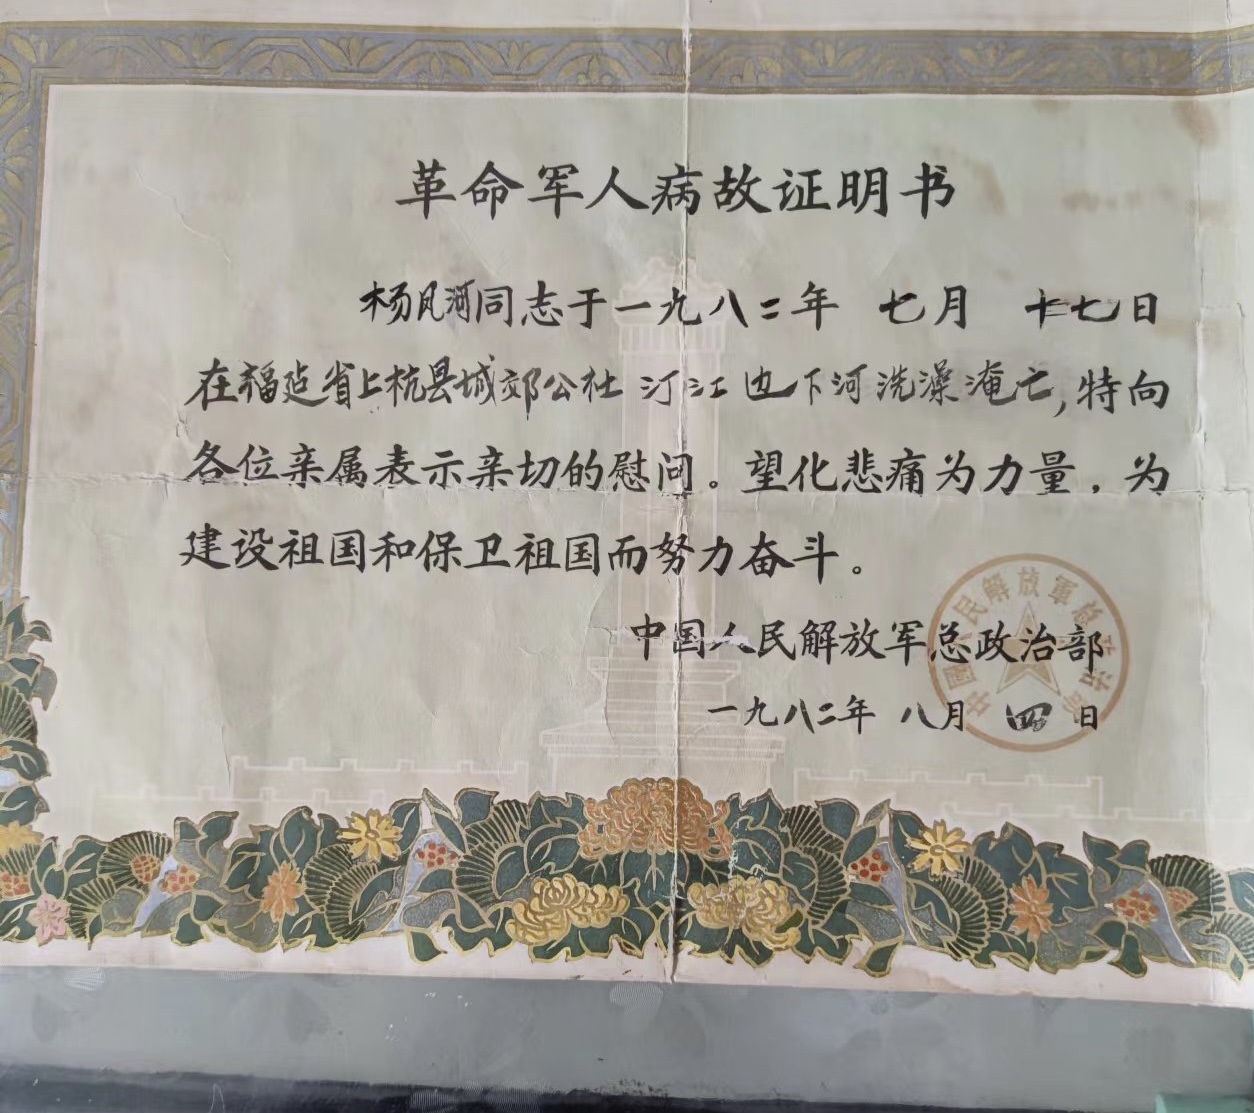 革命军人病故证明书
杨凤河同志于一九八二年 七月 十七日
在福建省上杭县城郊公社 汀江边下河洗澡淹亡,特向
各位亲属表示亲切的慰问。望化悲痛为力量,为
建设祖国和保卫祖国而努力奋斗。
中国人民解放军总政治部
一九八二年 八月 四日
中國人民解放軍總政治部